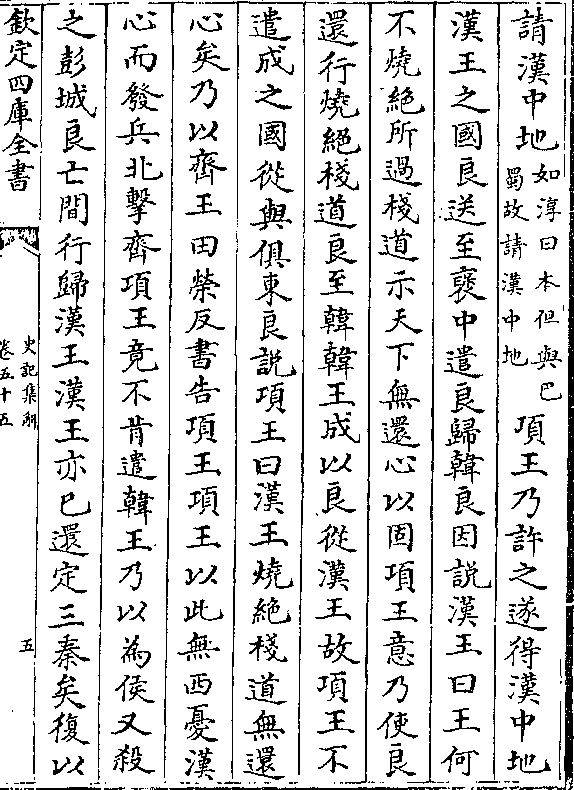 請漢中地如淳曰本但與巴蜀故請漢中地項王乃許之遂得漢中地
漢王之國良送至褒中遣良歸韓良因説漢王曰王何
不燒絶所過棧道示天下無還心以固項王意乃使良
還行燒絶棧道良至韓韓王成以良從漢王故項王不
遣成之國從與俱東良説項王曰漢王燒絶棧道無還
心矣乃以齊王田榮反書告項王項王以此無西憂漢
心而發兵北擊齊項王竟不肯遣韓王乃以為侯又殺
之彭城良亡間行歸漢王漢王亦已還定三秦矣復以
欽定四庫全書
史記集解
卷五十五
五